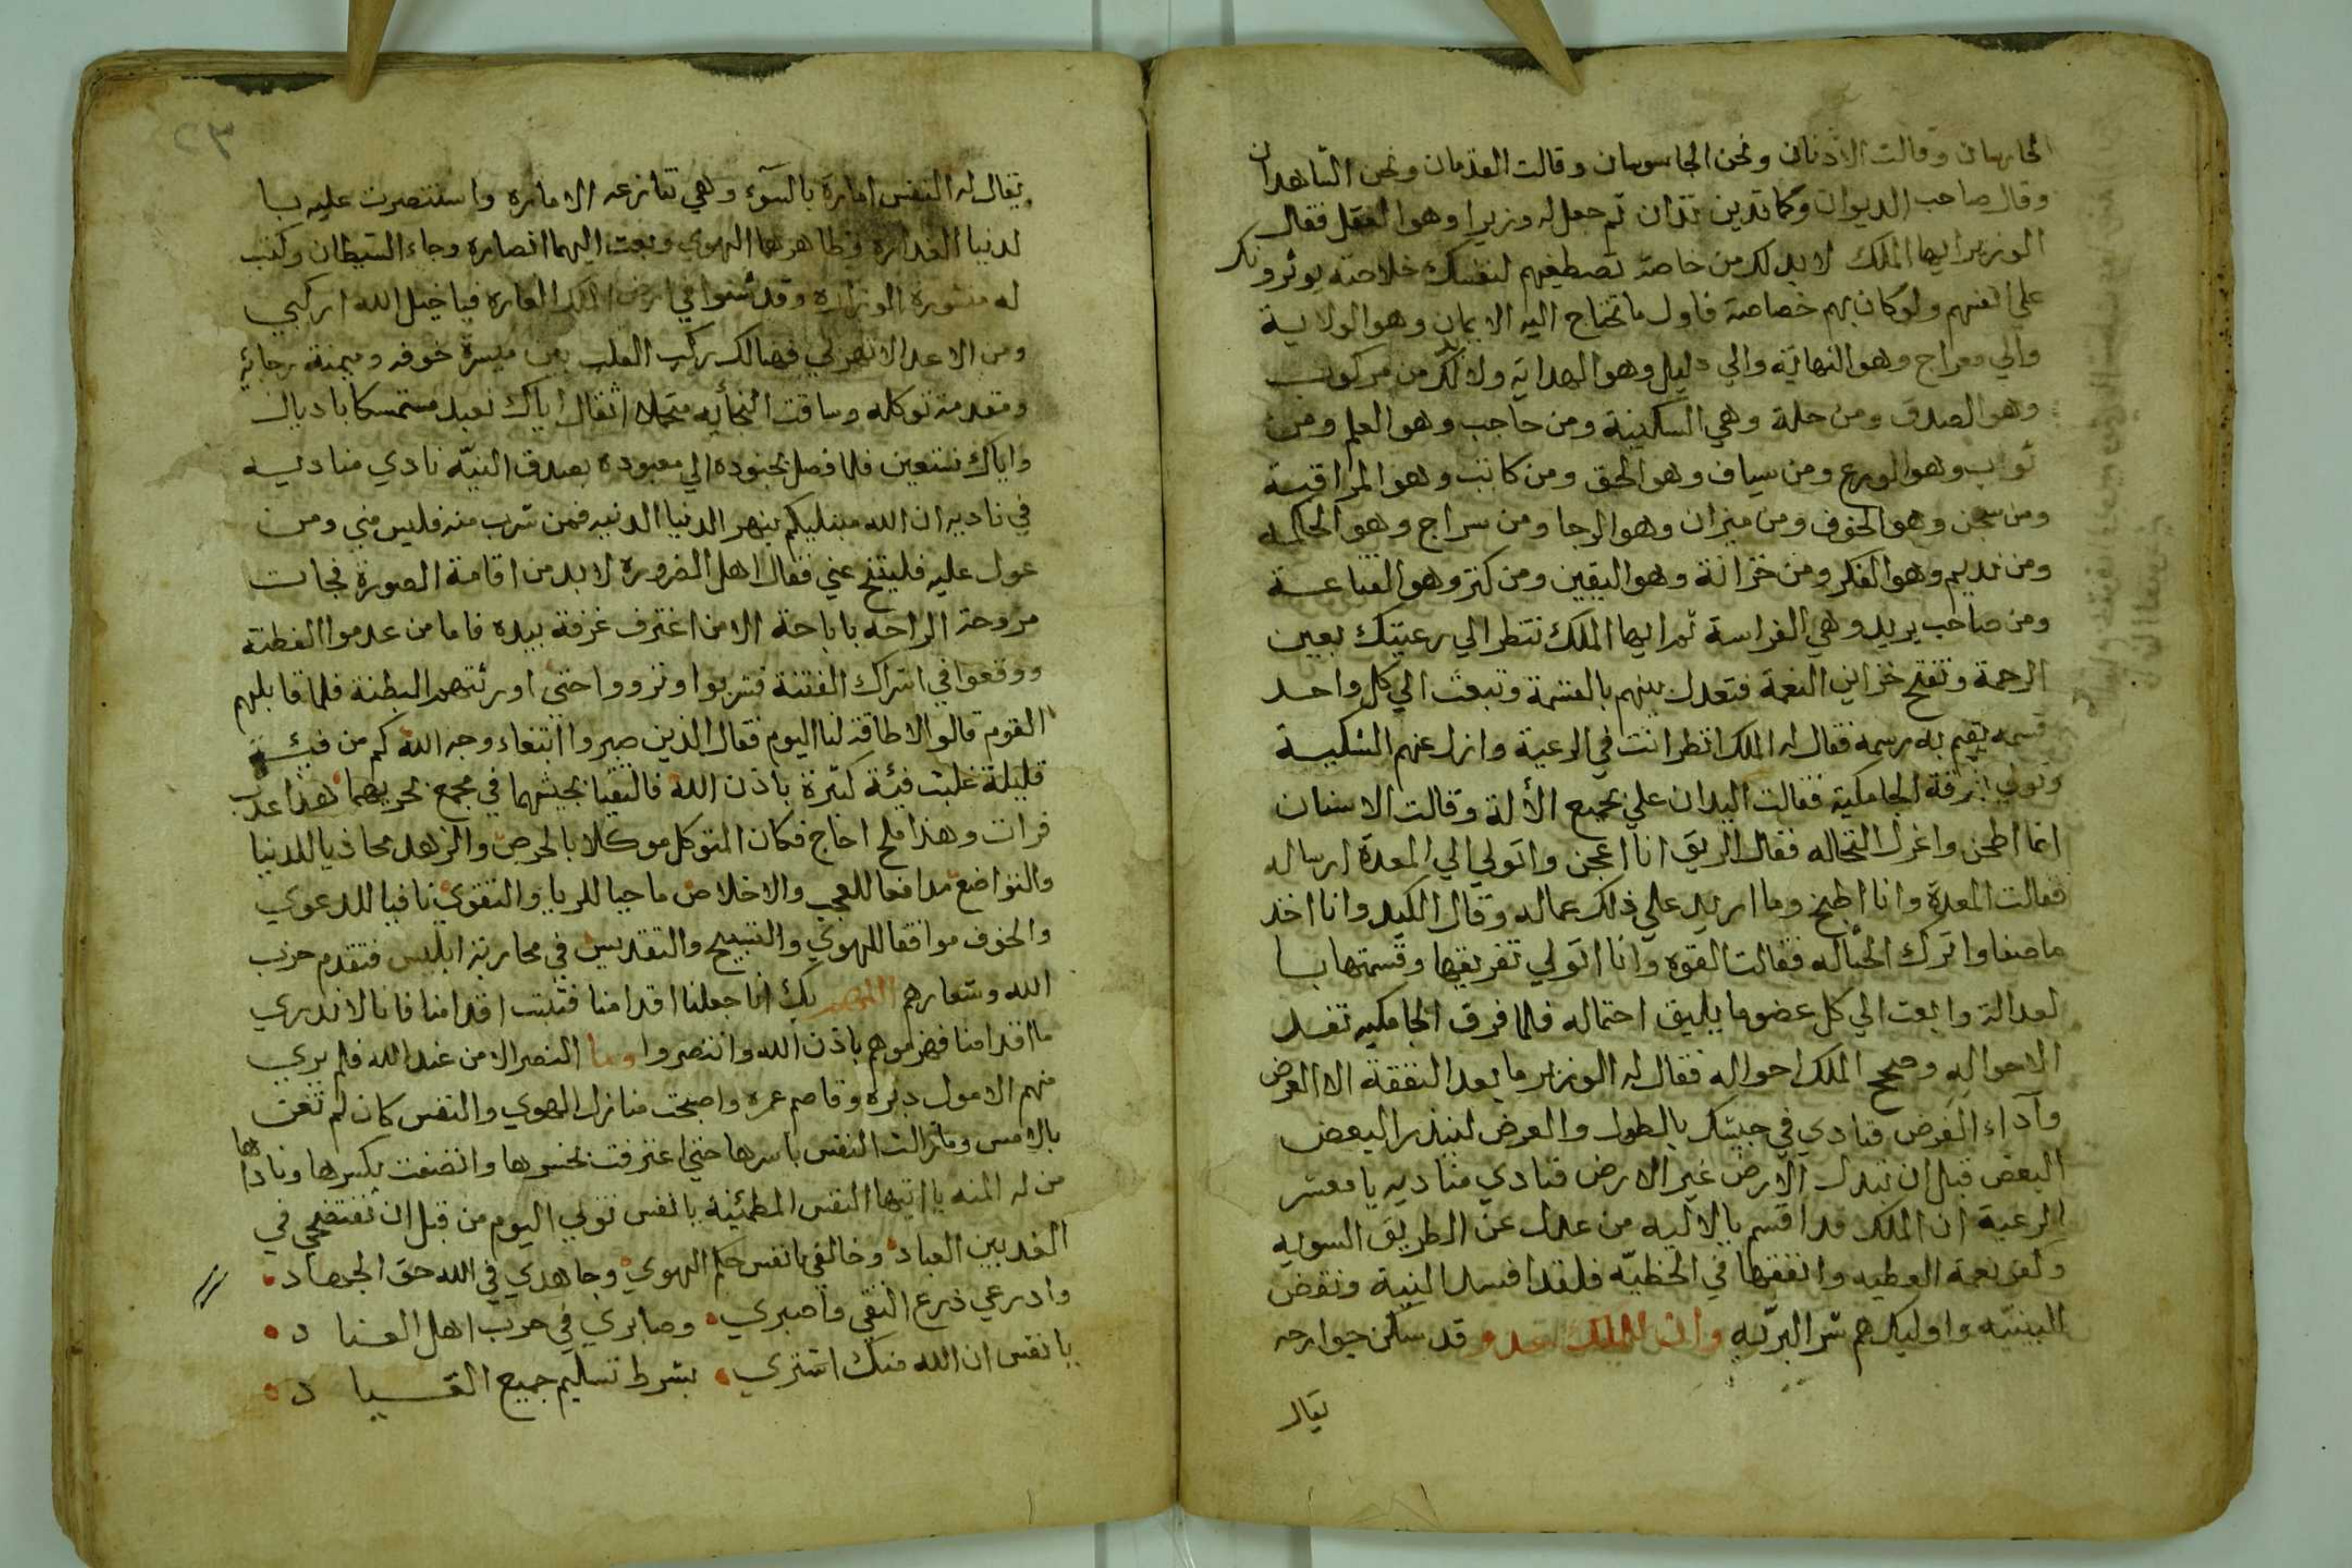 الحارسان وقالت الاذنان ونحن الجاسوسان وقالت القدمان ونحن الشاهدان
وقال صاحب الديوان وكما تدين تدان ثم جعل له وزيرا وهو العقل فقال
الوزير ايها الملك لا بد لك من خاصة تصطفيهم لنفسك خلاصة يوثرونك
على انفسهم ولو كان بهم خصاصة فاول ما تحتاج اليه الايمان وهو الولاية
والي معراج وهو النهاية والي دليل وهو الهداية ولا بد لك من مركوب
وهو الصدق ومن حلة وهي السكينة ومن حاجب وهو العلم ومن
ثواب وهو الورع ومن سياف وهو الحق ومن كاتب وهو المراقبة
ومن سجن وهو الخوف ومن ميزان وهو الرجا ومن سراج وهو الحكمه
ومن نديم وهو الفكر ومن خزانة وهو اليقين ومن كنز وهو القناعة
ومن صاحب بريد وهي الفراسة ثم ايها الملك تنظر الي رعيتك بعين
الرحمة وتفتح خزاين النعمة فتعدل بينهم بالقسمة وتبعث الي كل واحد
قسمه يقيم به رسمه فقال له الملك انظر انت في الرعية وازل عنهم الشكية
وتولي تفرقة الجامكية فقالت اليدان علي بجميع الألة وقالت الاسنان
انما اطحن واغزل النخاله فقال الريق انا اعجن واتولي الي المعدة ارساله
فقالت المعدة وانا اطبخ وما اريد علي ذلك عماله وقال الكبد وانا اخذ
ما صفا واترك الحثاله فقالت القوه وانا اتولي تفريقها وقسمتها با
لعدالة وابعث الي كل عضو ما يليق احتماله فلما فرق الجامكيه تفد
الاحواله وصحح الملك احواله فقال له الوزير ما بعد النفقة الا العرض
وآداء الفرض فنادي في جيشك بالطول والعرض لينذر البعض
البعض قبل ان تبدل الارض غير الارض فنادي مناديه يا معشر
الرعية ان الملك قد اقسم بالاليه من عدل عن الطريق السويه
وكفر نعمة العطيه وانفقها في الخطيّه فلقد افسد النية ونقض
البينيه واوليك هم شر البريّه وان للملك عدو قد سكن جوارحه
يقال
٢٣
يقال له النفس امارة بالسوٓء وهي تنازعه الاماره واستنصرت عليه با
لدنيا الغداره وظاهرهما الهوي وبعث اليهما انصاره وجاء الشيطان وكتب
له منشورة الوزاره وقد شنوا في ارض الملك الغاره فيا خيل الله اركبي
ومن الاعدا لا تهربي فهنالك ركب القلب بين ميسرة خوفه وميمنة رجائه
ومقدمة توكله وساقت النجأيه متحملا اثقال اياك نعبد متمسكا باذيال
واياك نستعين فلما فصل بجنوده الي معبوده بصدق النيّه نادي مناديه
في ناديه ان الله مبتليكم بنهر الدنيا الدنيه فمن شرب منه فليس مني ومن
عول عليه فليتنح عني فقال اهل الضرورة لا بد من اقامة الصورة فجات
مروحة الراحه باباحة الا من اغترف غرفة بيده فاما من عدموا الفطنة
ووقعوا في اشراك الفتنة فشربوا وتزووا حتي اورثتهم البطنة فلما قابلهم
القوم قالوا لا طاقة لنا اليوم فقال الذين صبروا ابتغاء وجه الله كم من فيئة
قليلة غلبت فيئة كثيرة باذن الله فالتقيا بجيشهما في مجمع بحريهما هذا عذب
فرات وهذا ملح اجاج فكان المتوكل موكلا بالحرص والزهد محاذيا للدنيا
والتواضع مدافعا للعجب والاخلاص ماحيا للريا والتقوي نافيا للدعوي
والخوف موافقا للهوي والتسبيح والتقديس في محاربة ابليس فتقدم حزب
الله وشعارهم اللهم بك انا جعلنا اقدامنا فثبت اقدامنا فانا لا ندري
ما اقدامنا فهزموهم باذن الله وانتصروا وما النصر الا من عند الله فلم يري
منهم الا مول دبره وقاصم عمره واصبحت منازل الهوي والنفس كان لم تغن
بالامس ومازالت النفس باسرها حتي اعترفت بخسرها واتصفت بكسرها وناداها
من له المنه يا ايتها النفس المطمئنة يا نفس توبي اليوم من قبل ان تفتضحي في
الغد بين العباد وخالفي يا نفس حكم الهوي وجاهدي في الله حق الجهاد
وادرعي ذرع التقي واصبري وصابري في حرب اهل العناد
يا نفس ان الله منك اشتري بشرط تسليم جميع القياد